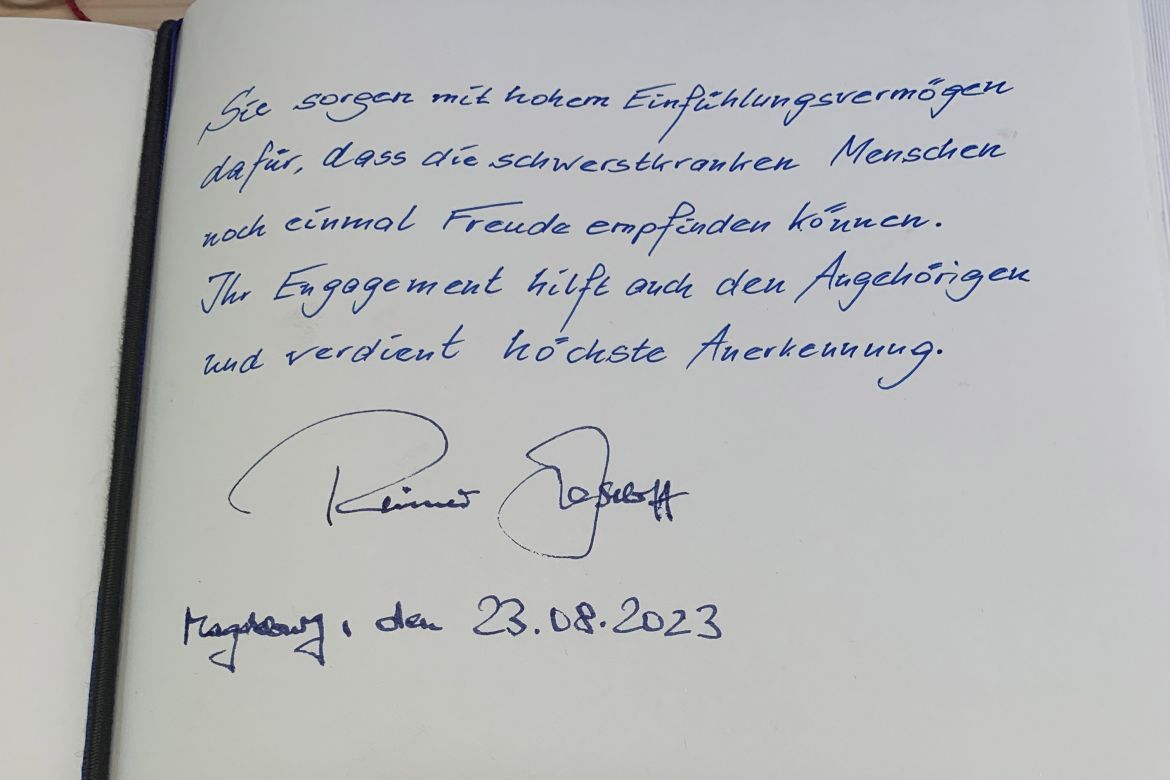 Sie sorgen mit hohem Einfühlungsvermögen
dafür, dass die schwerstkranken Menschen
noch einmal Freude empfinden können.
Ihr Engagement hilft auch den Angehörigen
und verdient höchste Anerkennung.
Reiner Haseloff
Magdeburg, den 23.08.2023